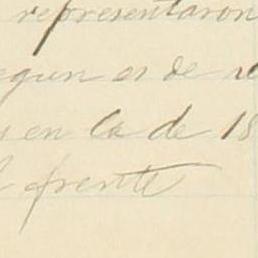 representaron
egun es de
en la de 18
frente